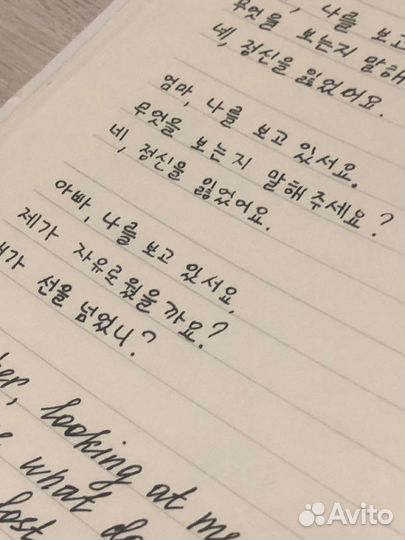 , 나를 보고
무엇을 보는지 말해
네, 정신을 잃었어요.
엄마, 나를 보고 있서요.
무엇을 보는지 말해주세요?
네, 정신을 잃었어요.
아빠, 나를 보고 있서요,
제가 자유로웠을가요?
선을 넘었니?
looking at me
what do
lost
Avito